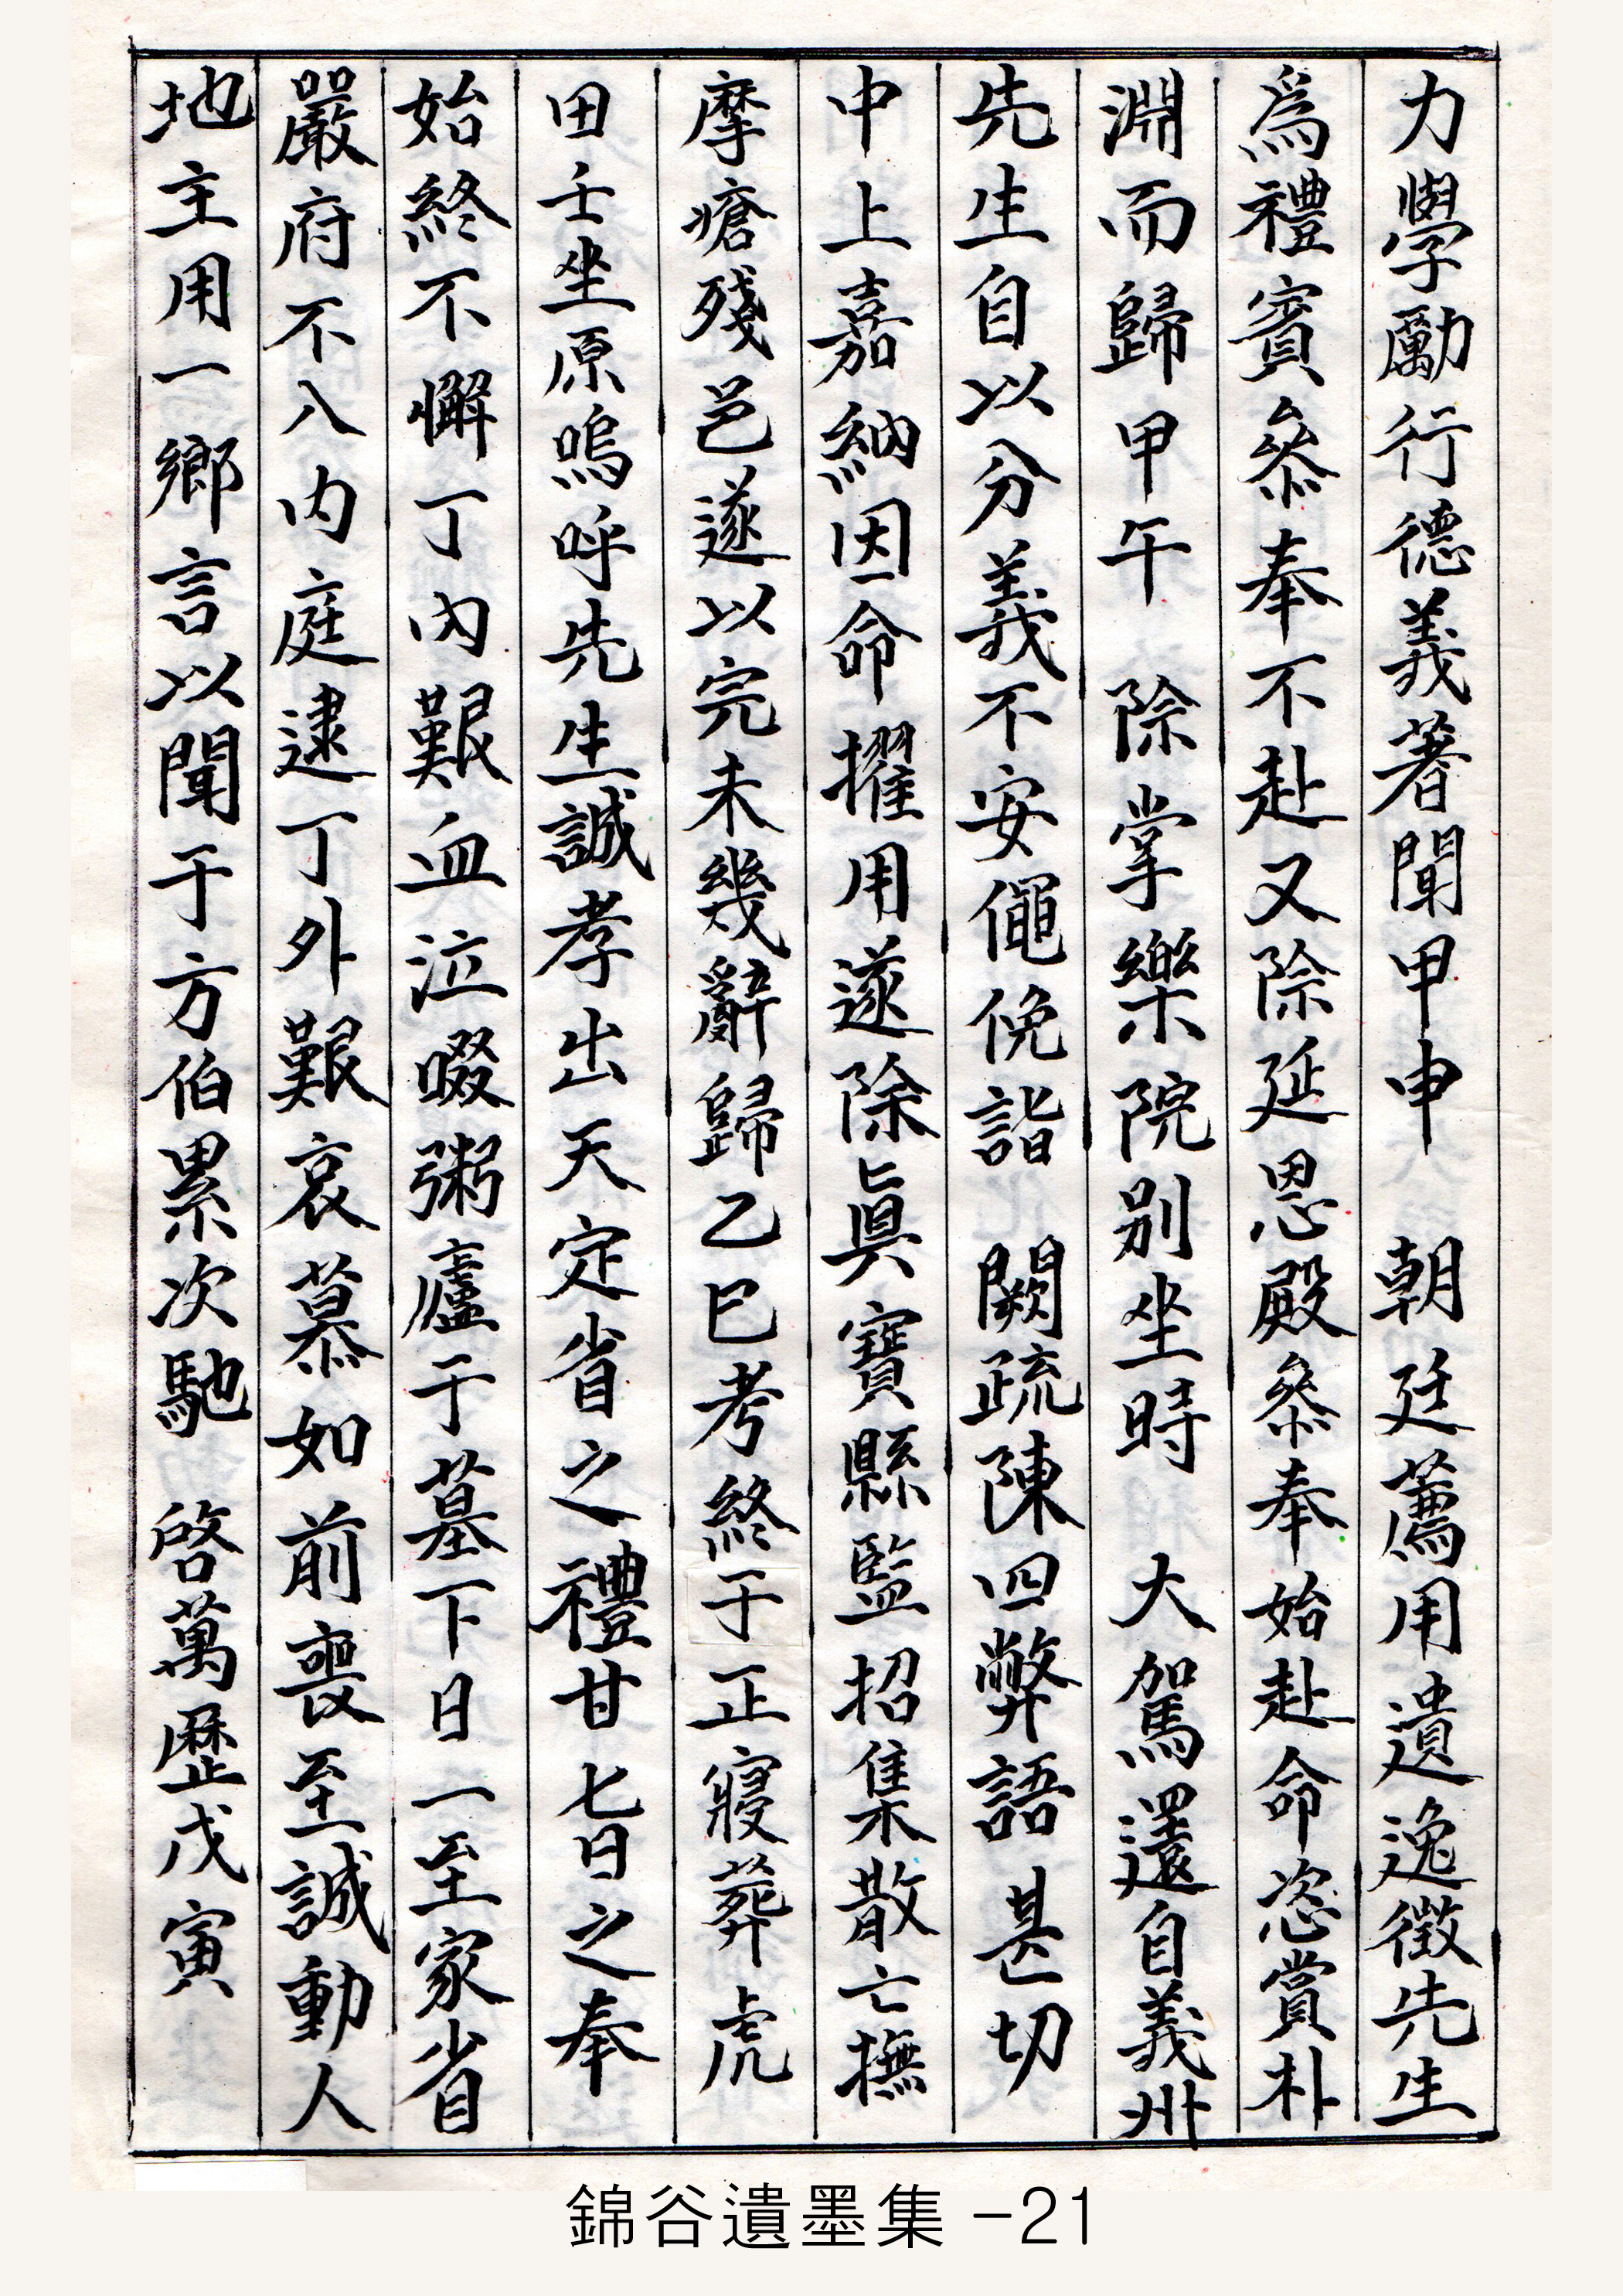 力學勵行德義著聞甲申　朝廷薦用遺逸徵先生
爲禮賓參奉不赴又除延恩殿參奉始赴命恣賞朴
淵而歸甲午　除掌樂院別坐時　大駕還自義州
先生自以分義不安僶俛詣　闕疏陳四弊語甚切
中上嘉納因命擢用遂除眞寶縣監招集散亡撫
摩瘡殘邑遂以完未幾辭歸乙巳考終于正寢葬虎
田壬坐原嗚呼先生誠孝出天定省之禮甘七日之奉
始終不懈丁內艱血泣啜粥廬于墓下日一至家省
嚴府不入內庭逮丁外艱哀慕如前喪至誠動人
地主用一鄉言以聞于方伯累次馳　啓萬歷戊寅
錦谷遺墨集 -21